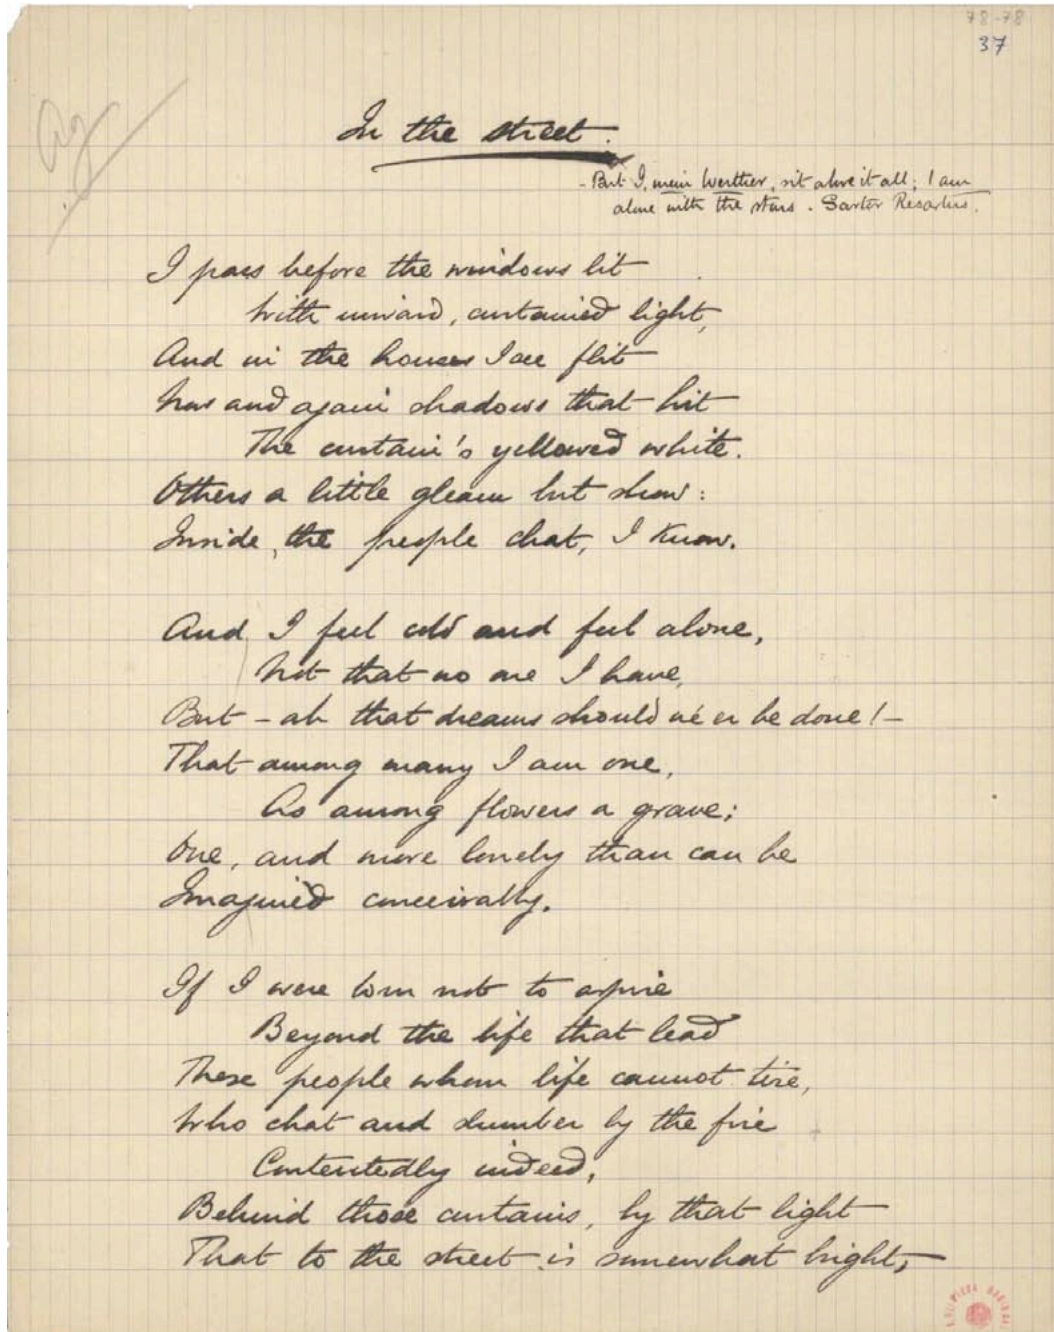 78-78
37
In the street.
- But I, mein Werther, sit above it all; I am
alone with the stars. Sartor Resartus.
I pass before the windows lit
With inward, curtained light,
And in the houses I see flit
Now and again shadows that hit
The curtain's yellowed white.
Others a little gleam but show:
Inside, the people chat, I know.
And I feel cold and feel alone,
Not that no one I have,
But – ah that dreams should ne'er be done! –
That among many I am one,
As among flowers a grave;
One, and more lonely than can be
Imagined conceivably.
If I were born not to aspire
Beyond the life that lead
These people whom life cannot tire,
Who chat and slumber by the fire
Contentedly indeed,
Behind those curtains, by that light
That to the street is somewhat bright,